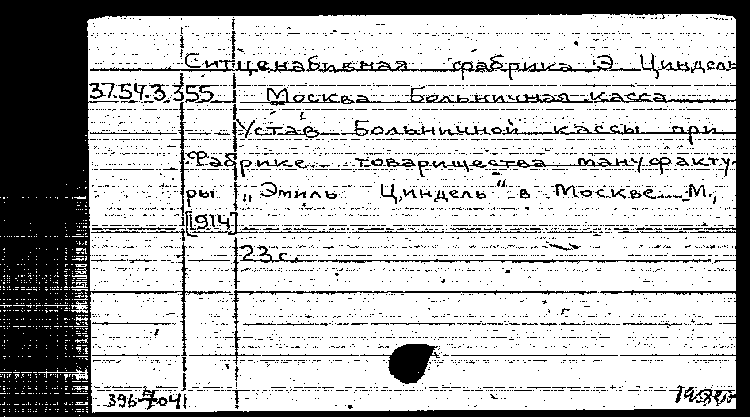 Ситценабивная фабрика Э. Циндель
37.54.3.355 Москва. Больничная касса.
Устав Больничной кассы при
Фабрике товарищества мануфакту-
ры „Эмиль Циндель" в Москве. М.,
[1914]
23 с.
396-7041